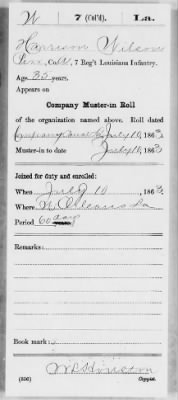 W 7 (Col'd). La.
Harrison Wilson
Co. W, 7 Reg't Louisiana Infantry.
Age 35 years.
Appears on
Company Muster-in Roll
of the organization named above. Roll dated
July 10, 1863.
Muster-in to date July 10, 1863
Joined for duty and enrolled:
When July 10, 1863.
Where N Orleans La
Period 60 days
Remarks:
Book mark:
(356) Copyist.